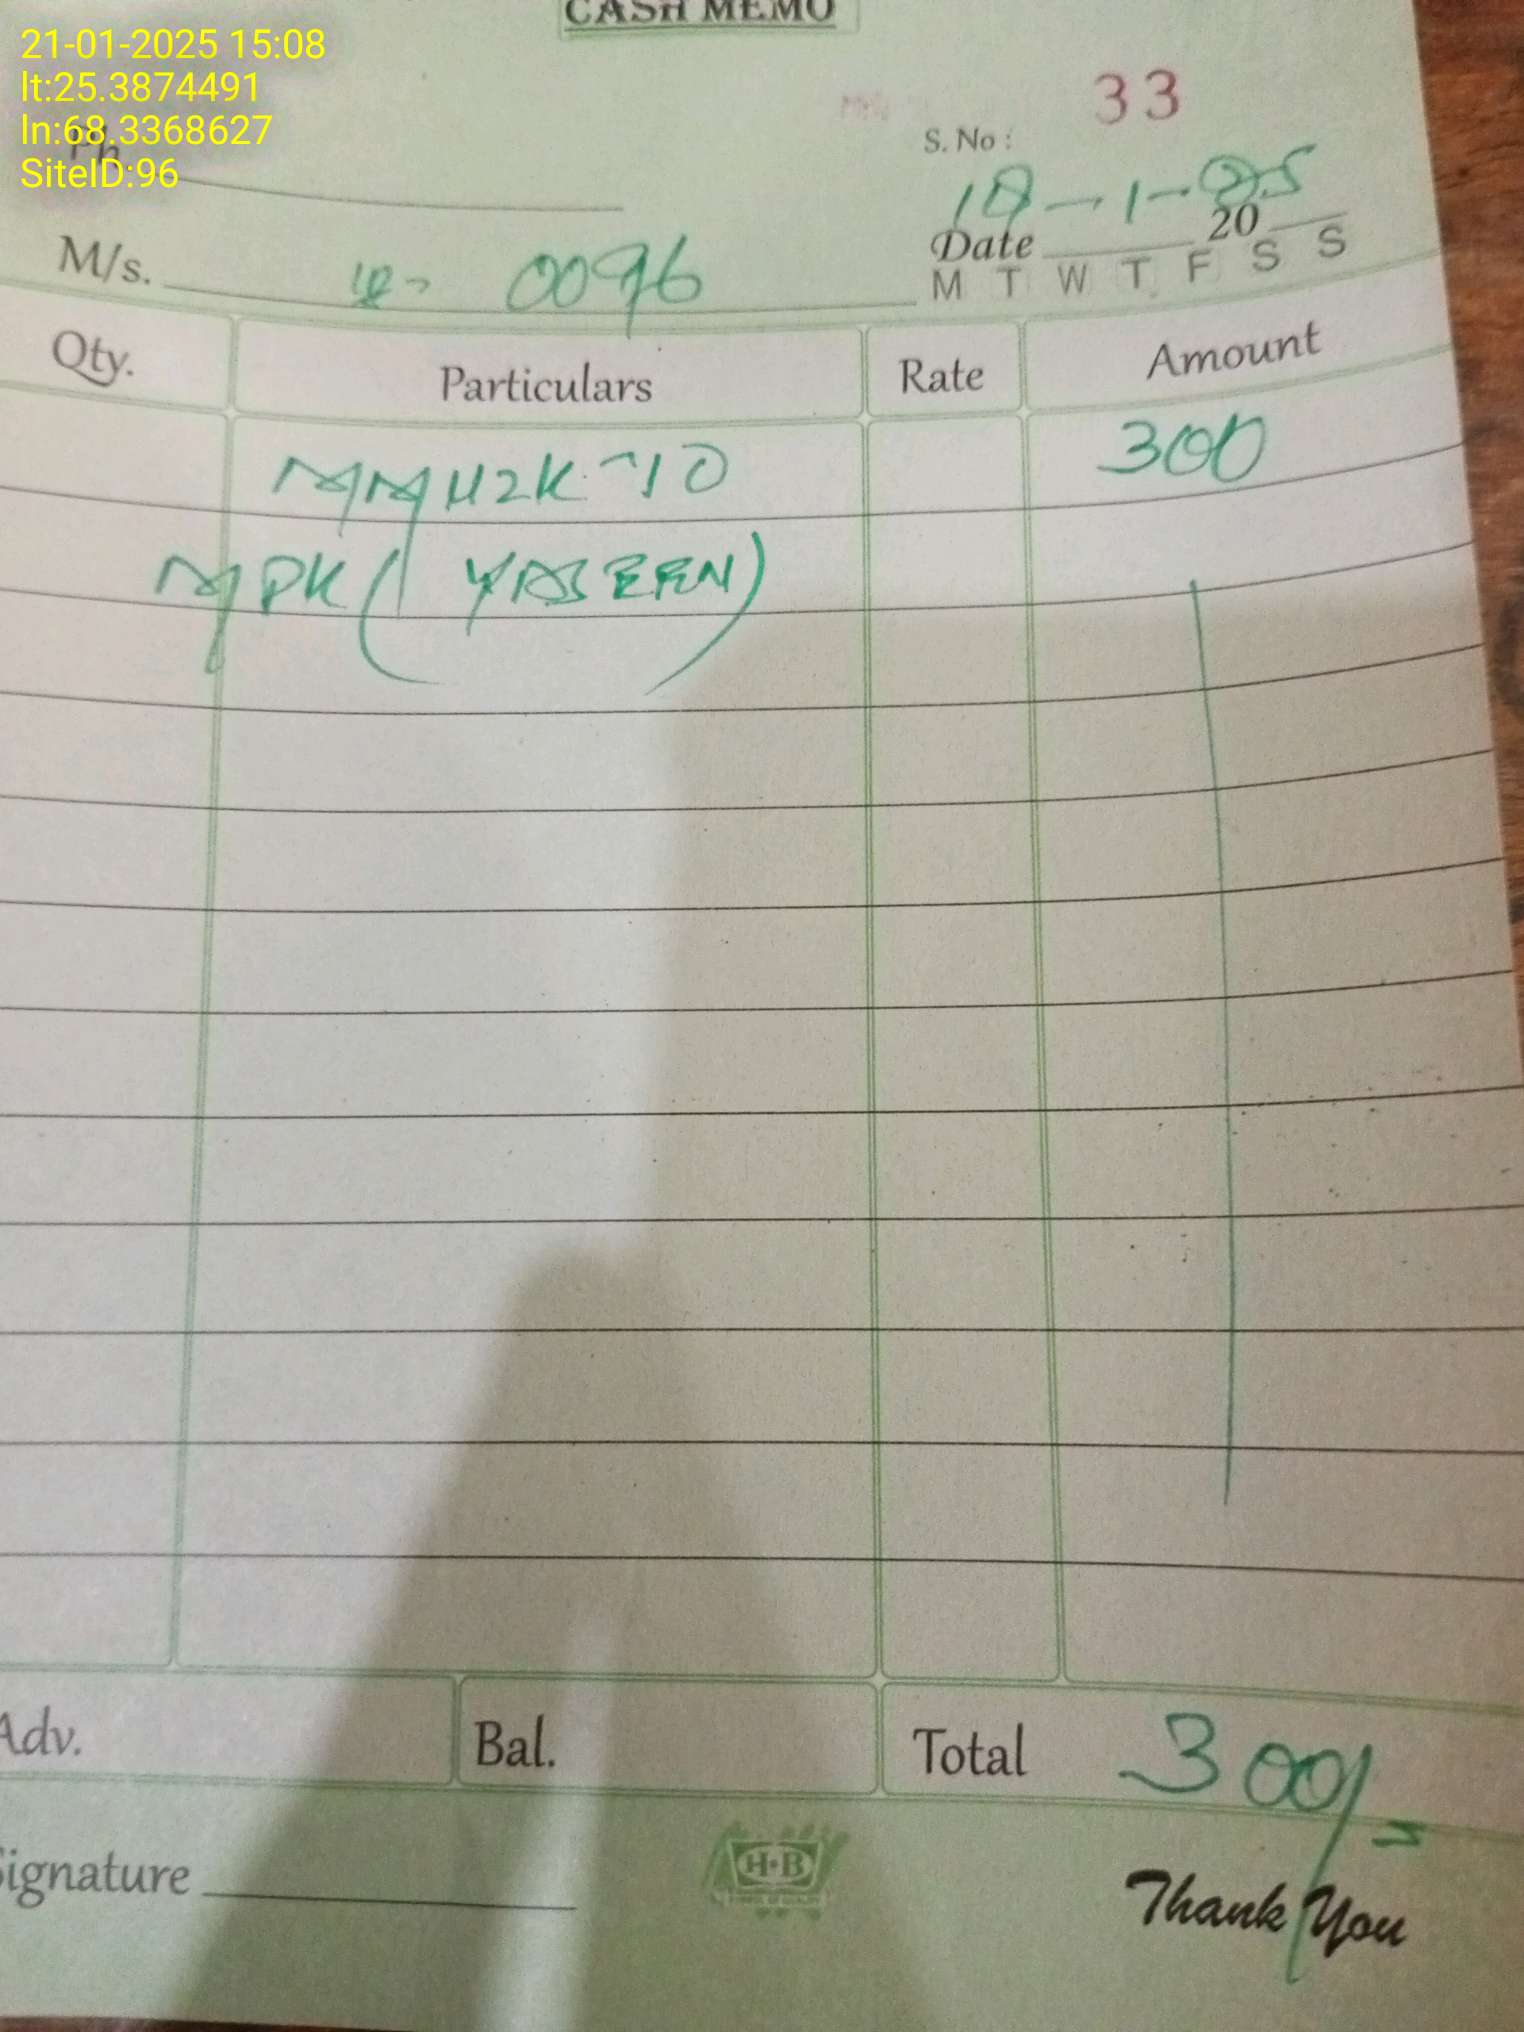 CASH MEMO
21-01-2025 15:08
lt:25.3874491
ln:68.3368627
SiteID:96
Ph
33
S. No :
Date 18-1-25 20
M/s. 0096
M T W T F S S
Qty. Particulars Rate Amount
300
MPK ( YASEEN)
Adv. Bal. Total 300/=
Signature
H·B
Thank You